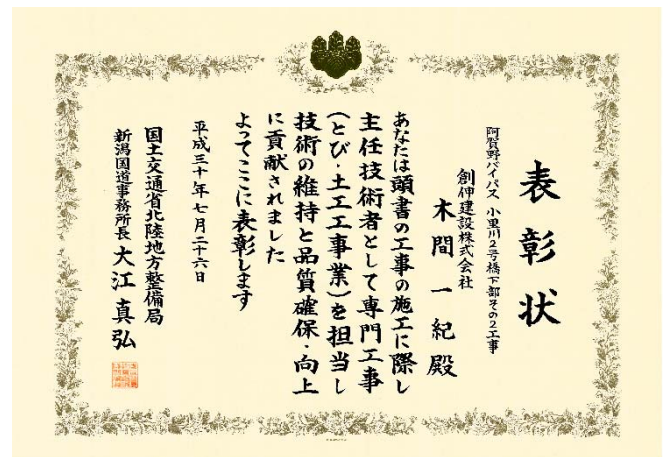 表彰状
阿賀野バイパス 小里川2号橋下部その2工事
創伸建設株式会社
本間一紀殿
あなたは頭書の工事の施工に際し
主任技術者として専門工事
(とび・土工工事業)を担当し
技術の維持と品質確保・向上
に貢献されました
よってここに表彰します
平成三十年七月二十六日
国土交通省北陸地方整備局
新潟国道事務所長 大江真弘